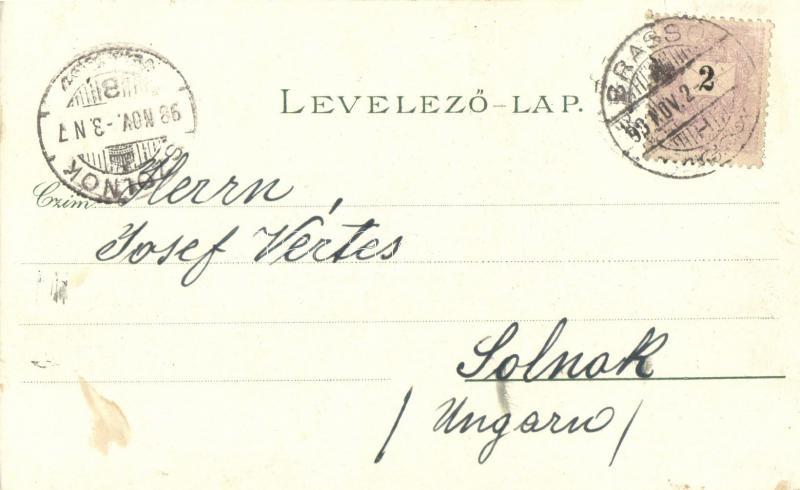 LEVELEZŐ-LAP.
BRASSÓ
98 NOV. 2
2
SZOLNOK
98 NOV. -3. N 7
B
Czim
Herrn,
Josef Vértes
Solnok
/Ungarn/